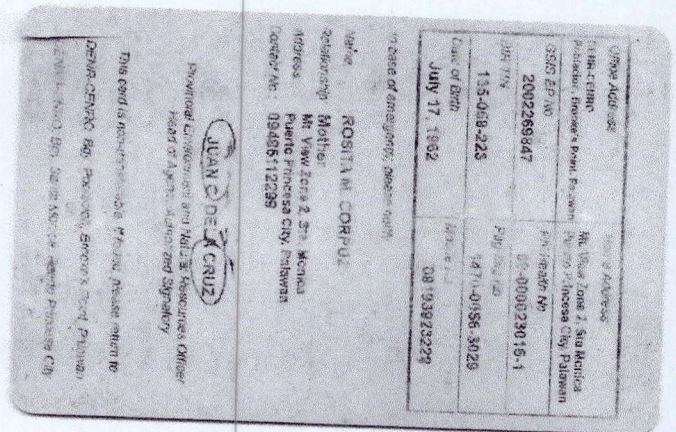 Office Address
DENR-CENRO
Poblacion, Brooke's Point, Palawan
Home Address
Mt. View Zone 2, Sta Monica
Puerto Princesa City, Palawan
GSIS BP NO
2002269847
PhilHealth No
-000023015-1
BIR TIN
135-068-223
Pag-ibig No
-3029
Date of Birth
July 17, 1962
Mobile No
08193923229
In case of emergency, please notify
Name ROSITA M. CORPUZ
Relationship Mother
Address Mt. View Zone 2, Sta. Monica
Puerto Princesa City, Palawan
Contact No : 09486112299
JUAN C DE LA CRUZ
Provincial Environment and Natural Resources Officer
Head of Agency/Authorized Signatory
This card is non-transferable. If found, please return to
DENR-CENRO, Brgy. Poblacion, Brooke's Point, Palawan
or
DENR-PENRO, Brgy. Santa Monica, Puerto Princesa City